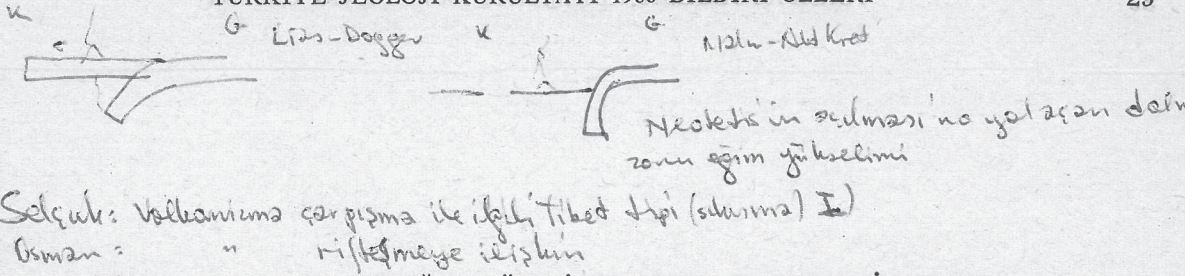 TÜRKİYE JEOLOJİ KURULTAYI
25
K G Lias-Dogger K G Malm-Alt Kret
Neotetis'in açılması'na yol açan
zonu eğim yükselimi
Selçuk: Volkanizma çarpışma ile ilgili Tibet tipi (sıkışma)
Osman: " riftleşmeye ilişkin